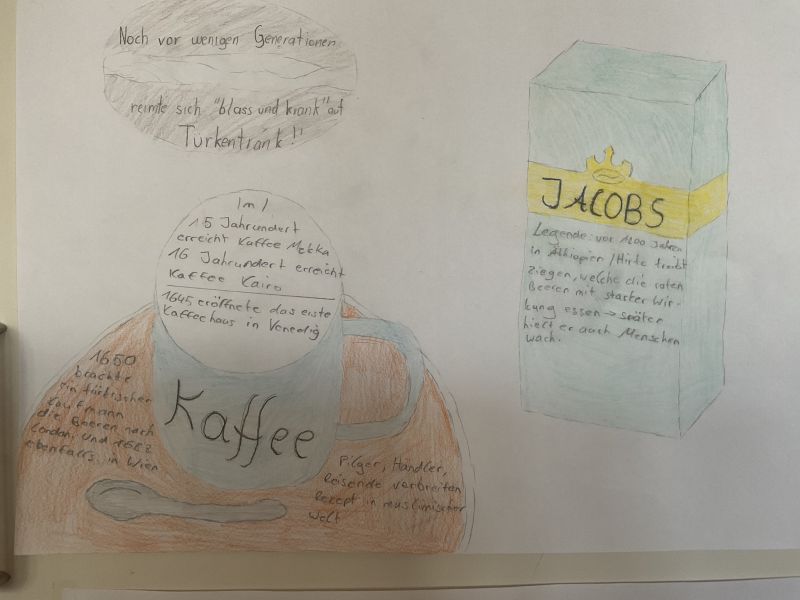 Noch vor wenigen Generationen
reimte sich "blass und krank" auf
Türkentrank!"
Im /
15 Jahrundert
erreicht Kaffee Mekka
16 Jahrundert erreicht
Kaffee Kairo
1645 eröffnete das erste
Kaffeehaus in Venedig
Kaffee
1650
brachte
ein türkischen
Kaufmann
die Beeren nach
London, und 1652
ebenfalls in Wien
Pilger, Händler,
Reisende verbreiten
Rezept in muslimischer
Welt
JACOBS
Legende: vor 1200 Jahren
in Äthiopien / Hirte treibt
Ziegen, welche die roten
Beeren mit starker Wir-
kung essen → später
hielt er auch Menschen
wach.